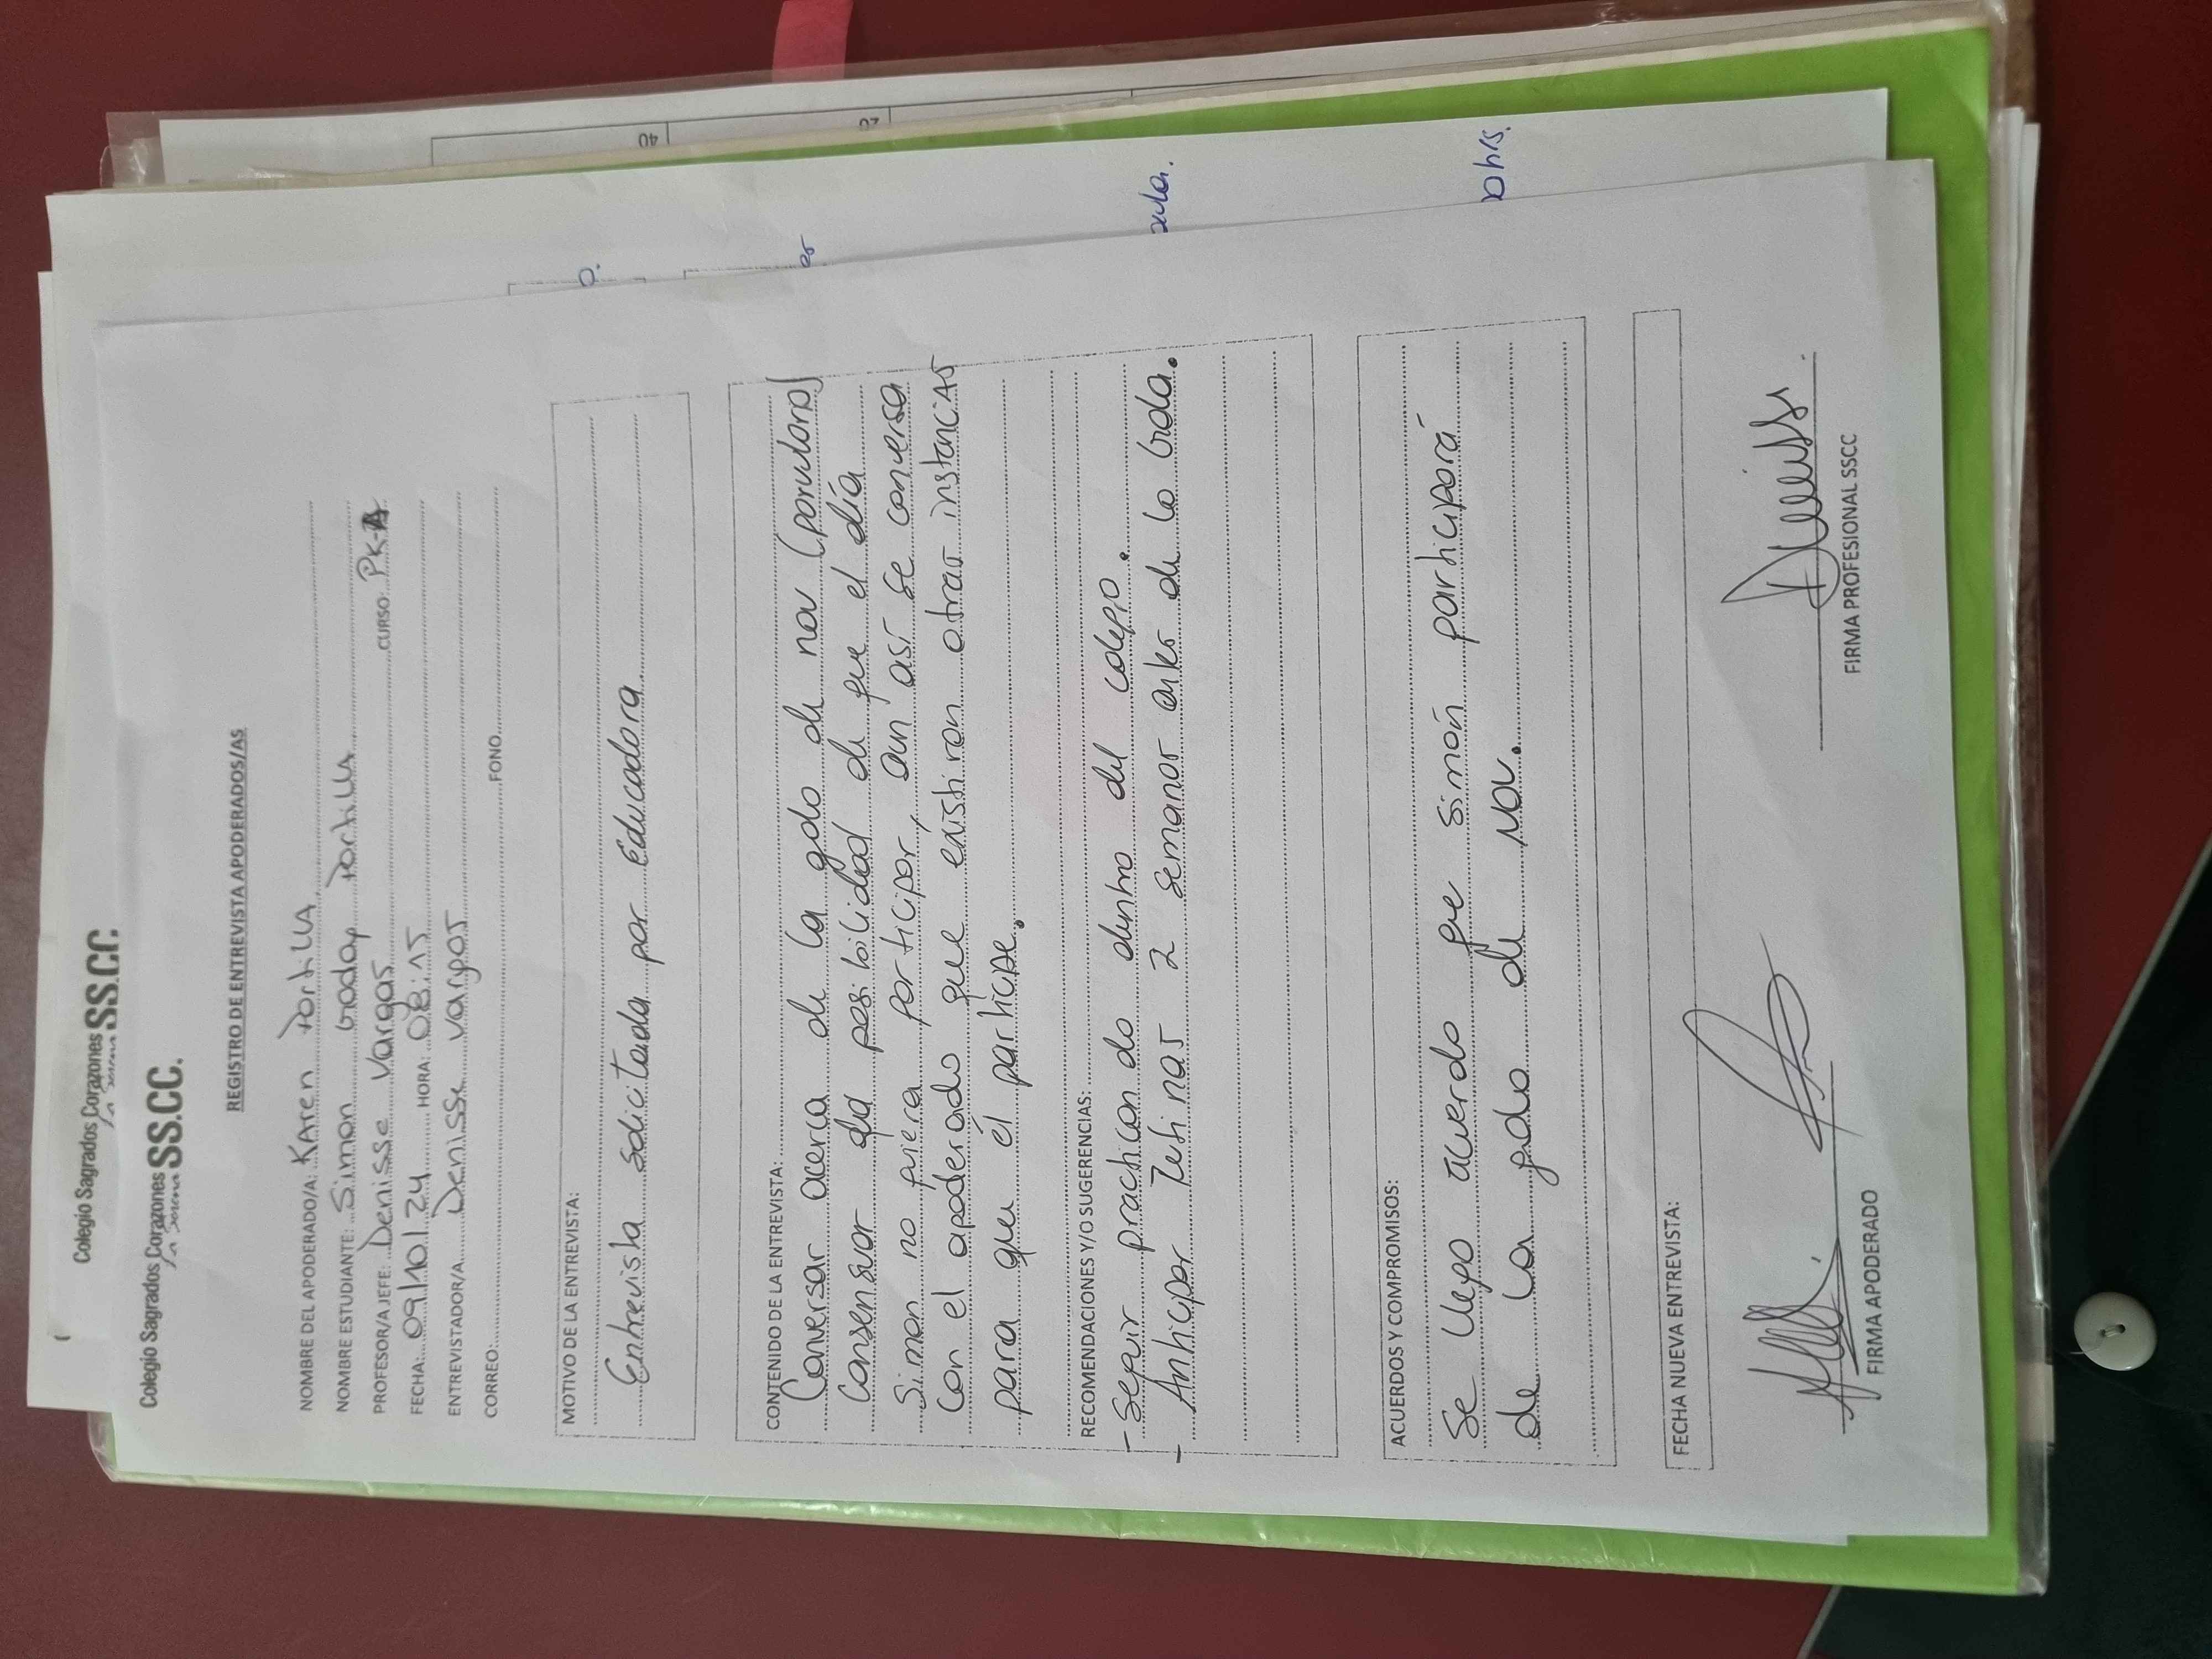 Colegio Sagrados Corazones SS.CC.
La Serena
Colegio Sagrados Corazones SS.CC.
La Serena
REGISTRO DE ENTREVISTA APODERADOS/AS
NOMBRE DEL APODERADO/A: Karen Portilla
NOMBRE ESTUDIANTE: Simon Godoy Portilla
PROFESOR/A JEFE: Denisse Vargas CURSO: PK-A
FECHA: 09/10/24 HORA: 08:15
ENTREVISTADOR/A: Denisse Vargas
CORREO: FONO
MOTIVO DE LA ENTREVISTA:
Entrevista solicitada por Educadora
CONTENIDO DE LA ENTREVISTA:
Conversar acerca de la gala de nov
Consensuar la posibilidad de que el día
Simon no quiera participar, aun así se conversa
Con el apoderado que existiran otras instancias
para que él participe.
RECOMENDACIONES Y/O SUGERENCIAS:
- Seguir practicando dentro del colegio.
- Anticipar rutinas 2 semanas antes de la Gala.
ACUERDOS Y COMPROMISOS:
Se llego acuerdo que simón participará
de la gala de Nov.
FECHA NUEVA ENTREVISTA:
FIRMA APODERADO
Denisse
FIRMA PROFESIONAL SSCC
40
20
o.
es
aula.
0 hrs.